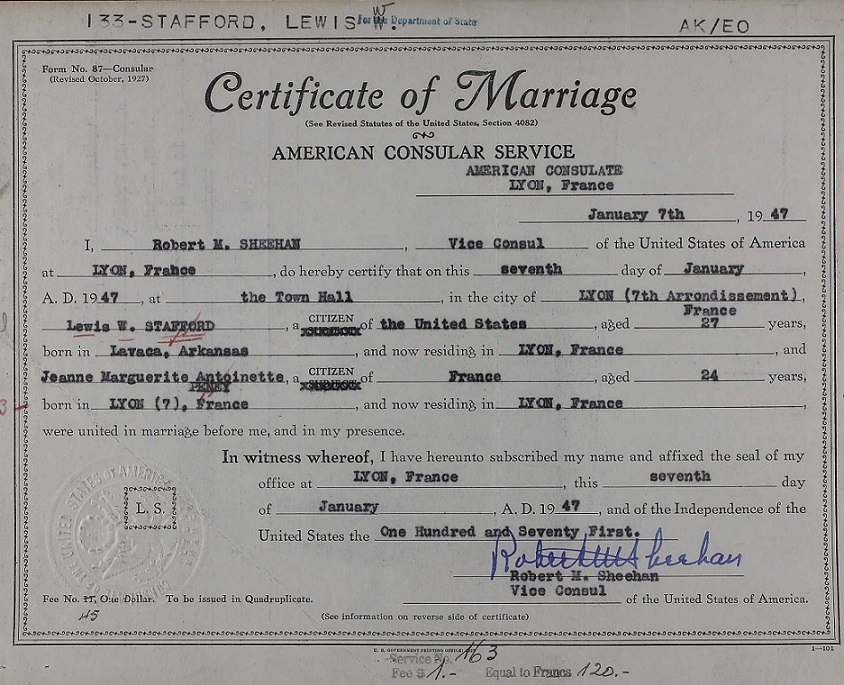 133-STAFFORD, LEWIS W.
For the Department of State
AK/EO
Form No. 87—Consular
(Revised October, 1927)
Certificate of Marriage
(See Revised Statutes of the United States, Section 4082)
AMERICAN CONSULAR SERVICE
AMERICAN CONSULATE
LYON, France
January 7th, 1947
I, Robert M. SHEEHAN, Vice Consul of the United States of America
at LYON, Frahce, do hereby certify that on this seventh day of January,
A. D. 1947, at the Town Hall, in the city of LYON (7th Arrondissement),
France
Lewis W. STAFFORD, a CITIZEN of the United States, aged 27 years,
born in Lavaca, Arkansas, and now residing in LYON, France, and
Jeanne Marguerite Antoinette, a CITIZEN of France, aged 24 years,
PENEY
born in LYON (7), France, and now residing in LYON, France,
were united in marriage before me, and in my presence.
In witness whereof, I have hereunto subscribed my name and affixed the seal of my
office at LYON, France, this seventh day
of January, A. D. 1947, and of the Independence of the
United States the One Hundred and Seventy First.
L. S.
Robert M Sheehan
Robert M. Sheehan
Vice Consul
of the United States of America.
Fee No. 11, One Dollar. To be issued in Quadruplicate.
45
(See information on reverse side of certificate)
U. S. GOVERNMENT PRINTING OFFICE
1—101
Service No. 163
Fee $ 1.- Equal to Francs 120.-